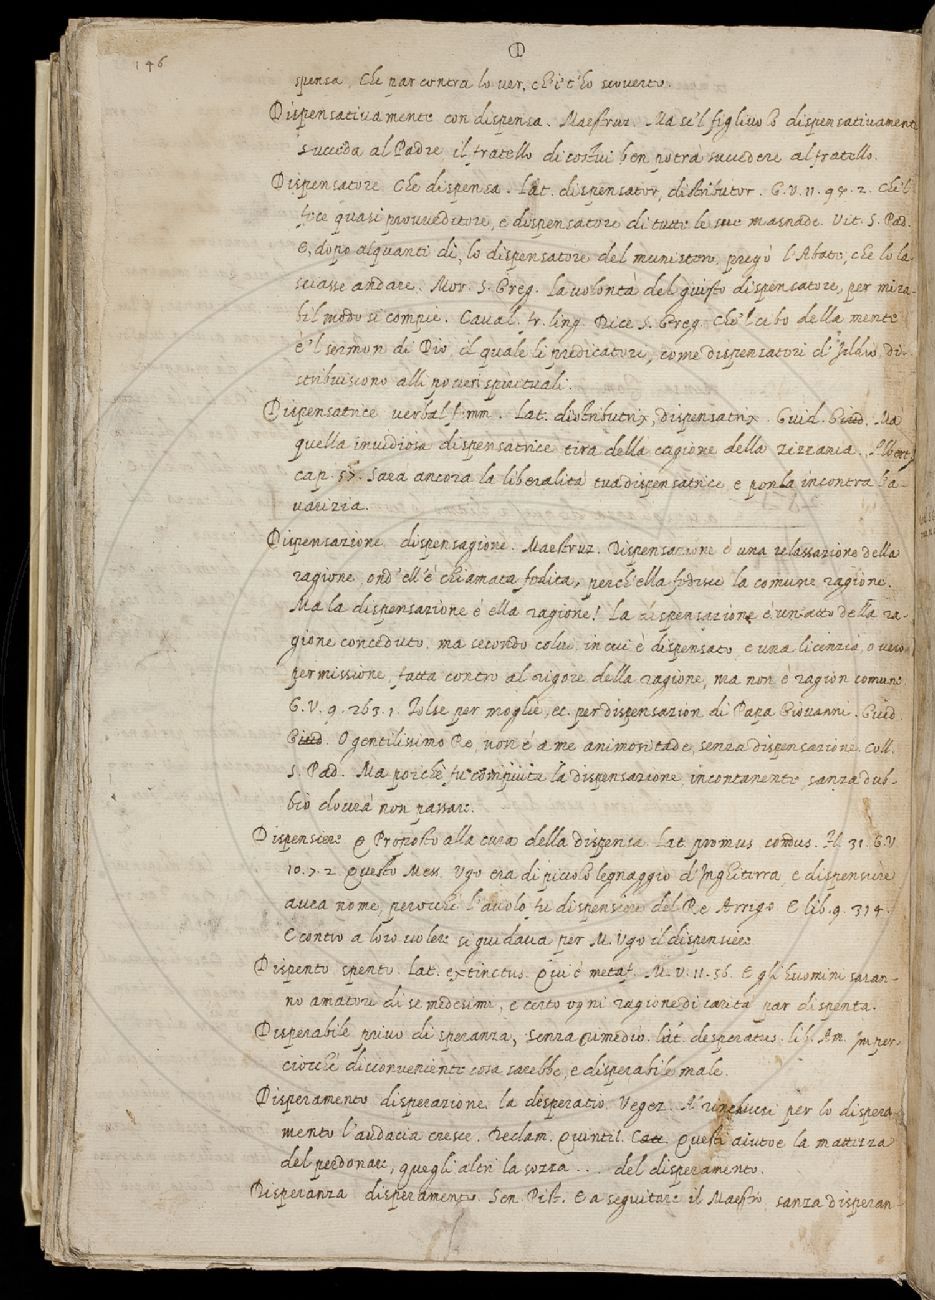 146
D
spensa, che par contra lo ver, ch'i t'ho scoverto.
Dispensativamente con dispensa. Maestruz. Ma se'l figliuolo dispensativamente
succeda al Padre il fratello di costui ben potrà succedere al fratello.
Dispensatore Che dispensa. Lat. dispensator, distributor. G.V. 11. 94. 2. Che'l
foce quasi provveditore, e dispensatore di tutte le sue masnade. Vit. S. Pad.
E, dopo alquanti dì, lo dispensatore del munistero, pregò l'Abate, che lo la-
sciasse andare. Mor. S. Greg. la volontà del giusto dispensatore, per mira-
bil modo si compie. Caval. fr. ling. Dice S. Greg. che'l cibo della mente
è 'l sermon di Dio, il quale li predicatori, come dispensatori d' Iddio, di-
stribuiscono alli poveri spirituali.
Dispensatrice verbal femm. Lat. distributrix, dispensatrix. Guid. Giud. Ma
quella invidiosa dispensatrice tira della cagione della zizzania. Albert.
cap. 57. Sarà ancora la liberalità tua dispensatrice e ponla incontra l'a-
varizia.
Dispensazione dispensagione. Maestruz. Dispensazione è una relassazione della
ragione, ond'ell'è chiamata fedita, perch'ella fedisce la comune ragione.
Ma la dispensazione è ella ragione! La dispensazione è un atto della ra-
gione conceduto, ma secondo colui, in cui è dispensato, è una licenzia, o vero
permissione, fatta contro al rigore della ragione, ma non è ragion comune
G.V. 9. 263. 1. Tolse per moglie, ec. per dispensazion di Papa Giovanni. Guid.
Giud. O gentilissimo Re, non è a me animositade, senza dispensazione. Coll.
S. Pad. Ma poichè fu compiuta la dispensazione, incontanente, sanza dub-
bio dovea non passare.
Dispensiere Proposto alla cura della dispensa. Lat. promus condus. G.V.
10. 7. 2. Questo Mess. Ugo era di piccolo legnaggio d'Inghiterra, e dispensiere
avea nome, perocchè l'avolo fu dispensiere del Re Arrigo E lib. 9. 314.
E contro a loro volere si guidava per M. Ugo il dispensiere
Dispento spento. Lat. extinctus. Qui è metaf. M.V. 11. 56. E gli huomini saran-
no amatori di se medesimi, e certo ogni ragione di carità par dispenta.
Disperabile privo di speranza, senza rimedio. Lat. desperatus. lib. Am. Imper-
ciocchè disconveniente cosa sarebbe, e disperabile male.
Disperamento disperazione. la desperatio. Vegez. A' rinchiusi per lo dispera-
mento l'audacia cresce. Declam. Quintil. Questi aiutoe la mattezza
del perdonare, quegli altri la sozza . . . del disperamento.
Disperanza disperamento. Sen. Pist. E a seguitare il Maestro, sanza disperan-